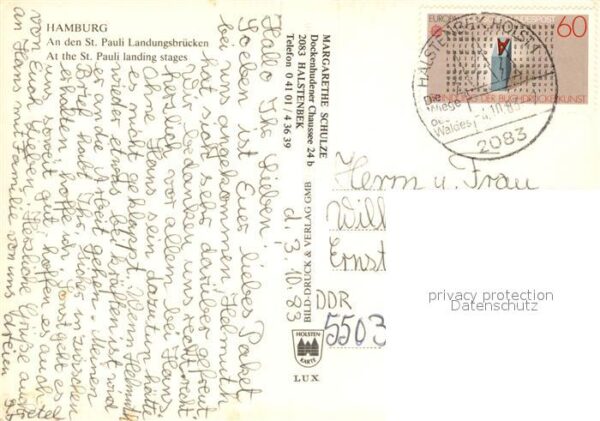 HAMBURG
An den St. Pauli Landungsbrücken
At the St. Pauli landing stages
MARGARETHE SCHULZE
Dockenhudener Chaussee 24 b
2083 HALSTENBEK
Telefon 0 41 01 / 4 36 39
d. 3. 10. 83
Hallo Ihr Lieben!
Soeben ist Euer liebes Paket
bei uns angekommen. Helmuth
hat sich sehr darüber gefreut.
Wir bedanken uns recht
herzlich vor allem bei Hans,
ohne Hans sein dazutun hätte
es nicht geklappt. Wenn Helmuth
wieder etwas bei Kräften ist wird
er an die Arbeit gehen. Meinen
Brief habt Ihr sicher inzwischen
erhalten hoffe ich. Sonst geht es
soweit gut, hoffen es auch
von Euch Lieben. Herzliche Grüße auch
an Hans mit Familie von uns
BILD-DRUCK & VERLAG GMB
HOLSTEN KARTE
LUX
EUROPA
DEUTSCHE BUNDESPOST
60
HALSTENBEK, HOLST
-4.10.83
2083
Herrn u. Frau
Will
Ernst
DDR
5503
privacy protection
Datenschutz